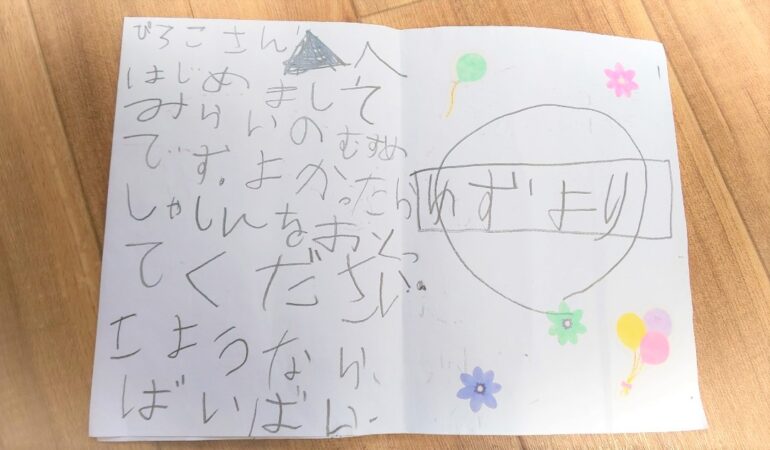 ぴろこさんへ
はじめまして
みらいのむすめ
です。よかったら
しゃしんをおくっ
てください。
さようなら、
ばいばい
ゆずより